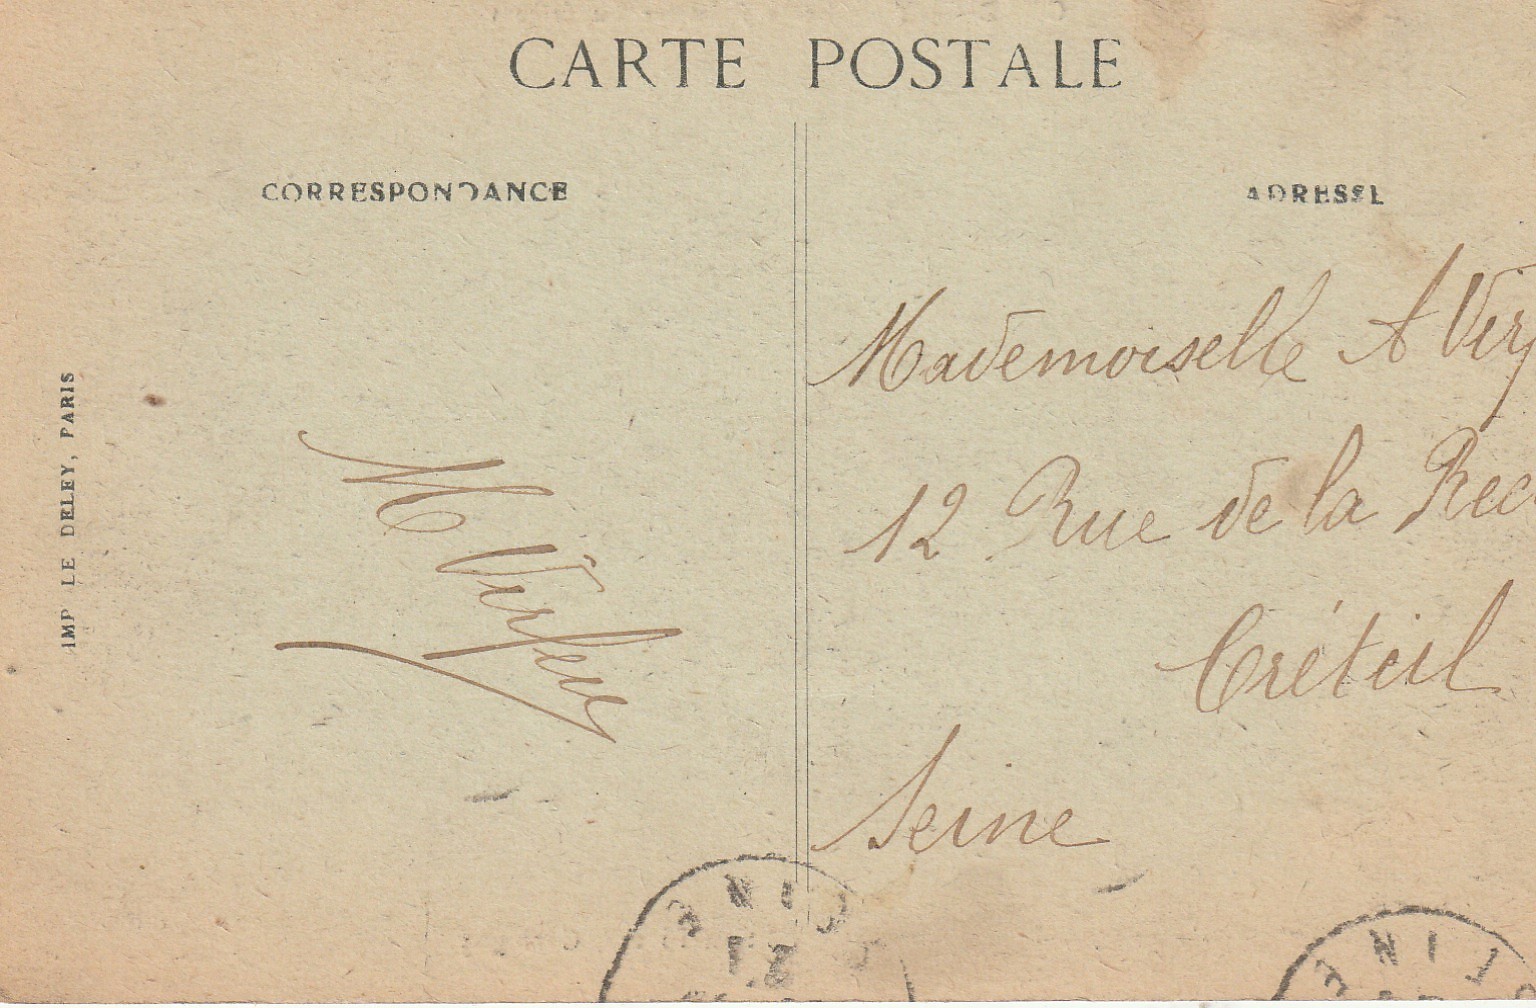 CARTE POSTALE
CORRESPONDANCE
ADRESSE
IMP LE DELEY, PARIS
M
Mademoiselle A
12 Rue de la
Créteil
Seine